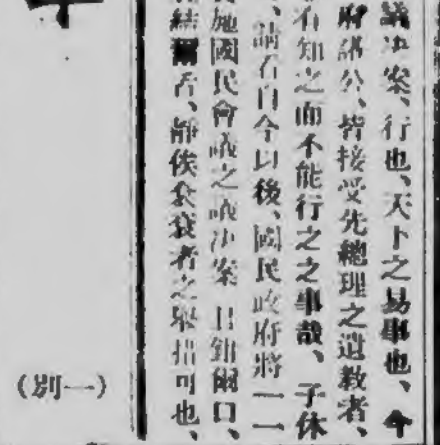 議决案、行也、天下之易事也、今
府諸公、皆接受先總理之遺教者、
有知之而不能行之之事哉、子休
、請看自今以後、國民政府將一一
施國民會議之議决案、且鉗爾口、
結爾舌、靜俟袞袞者之舉措可也、
(別一)